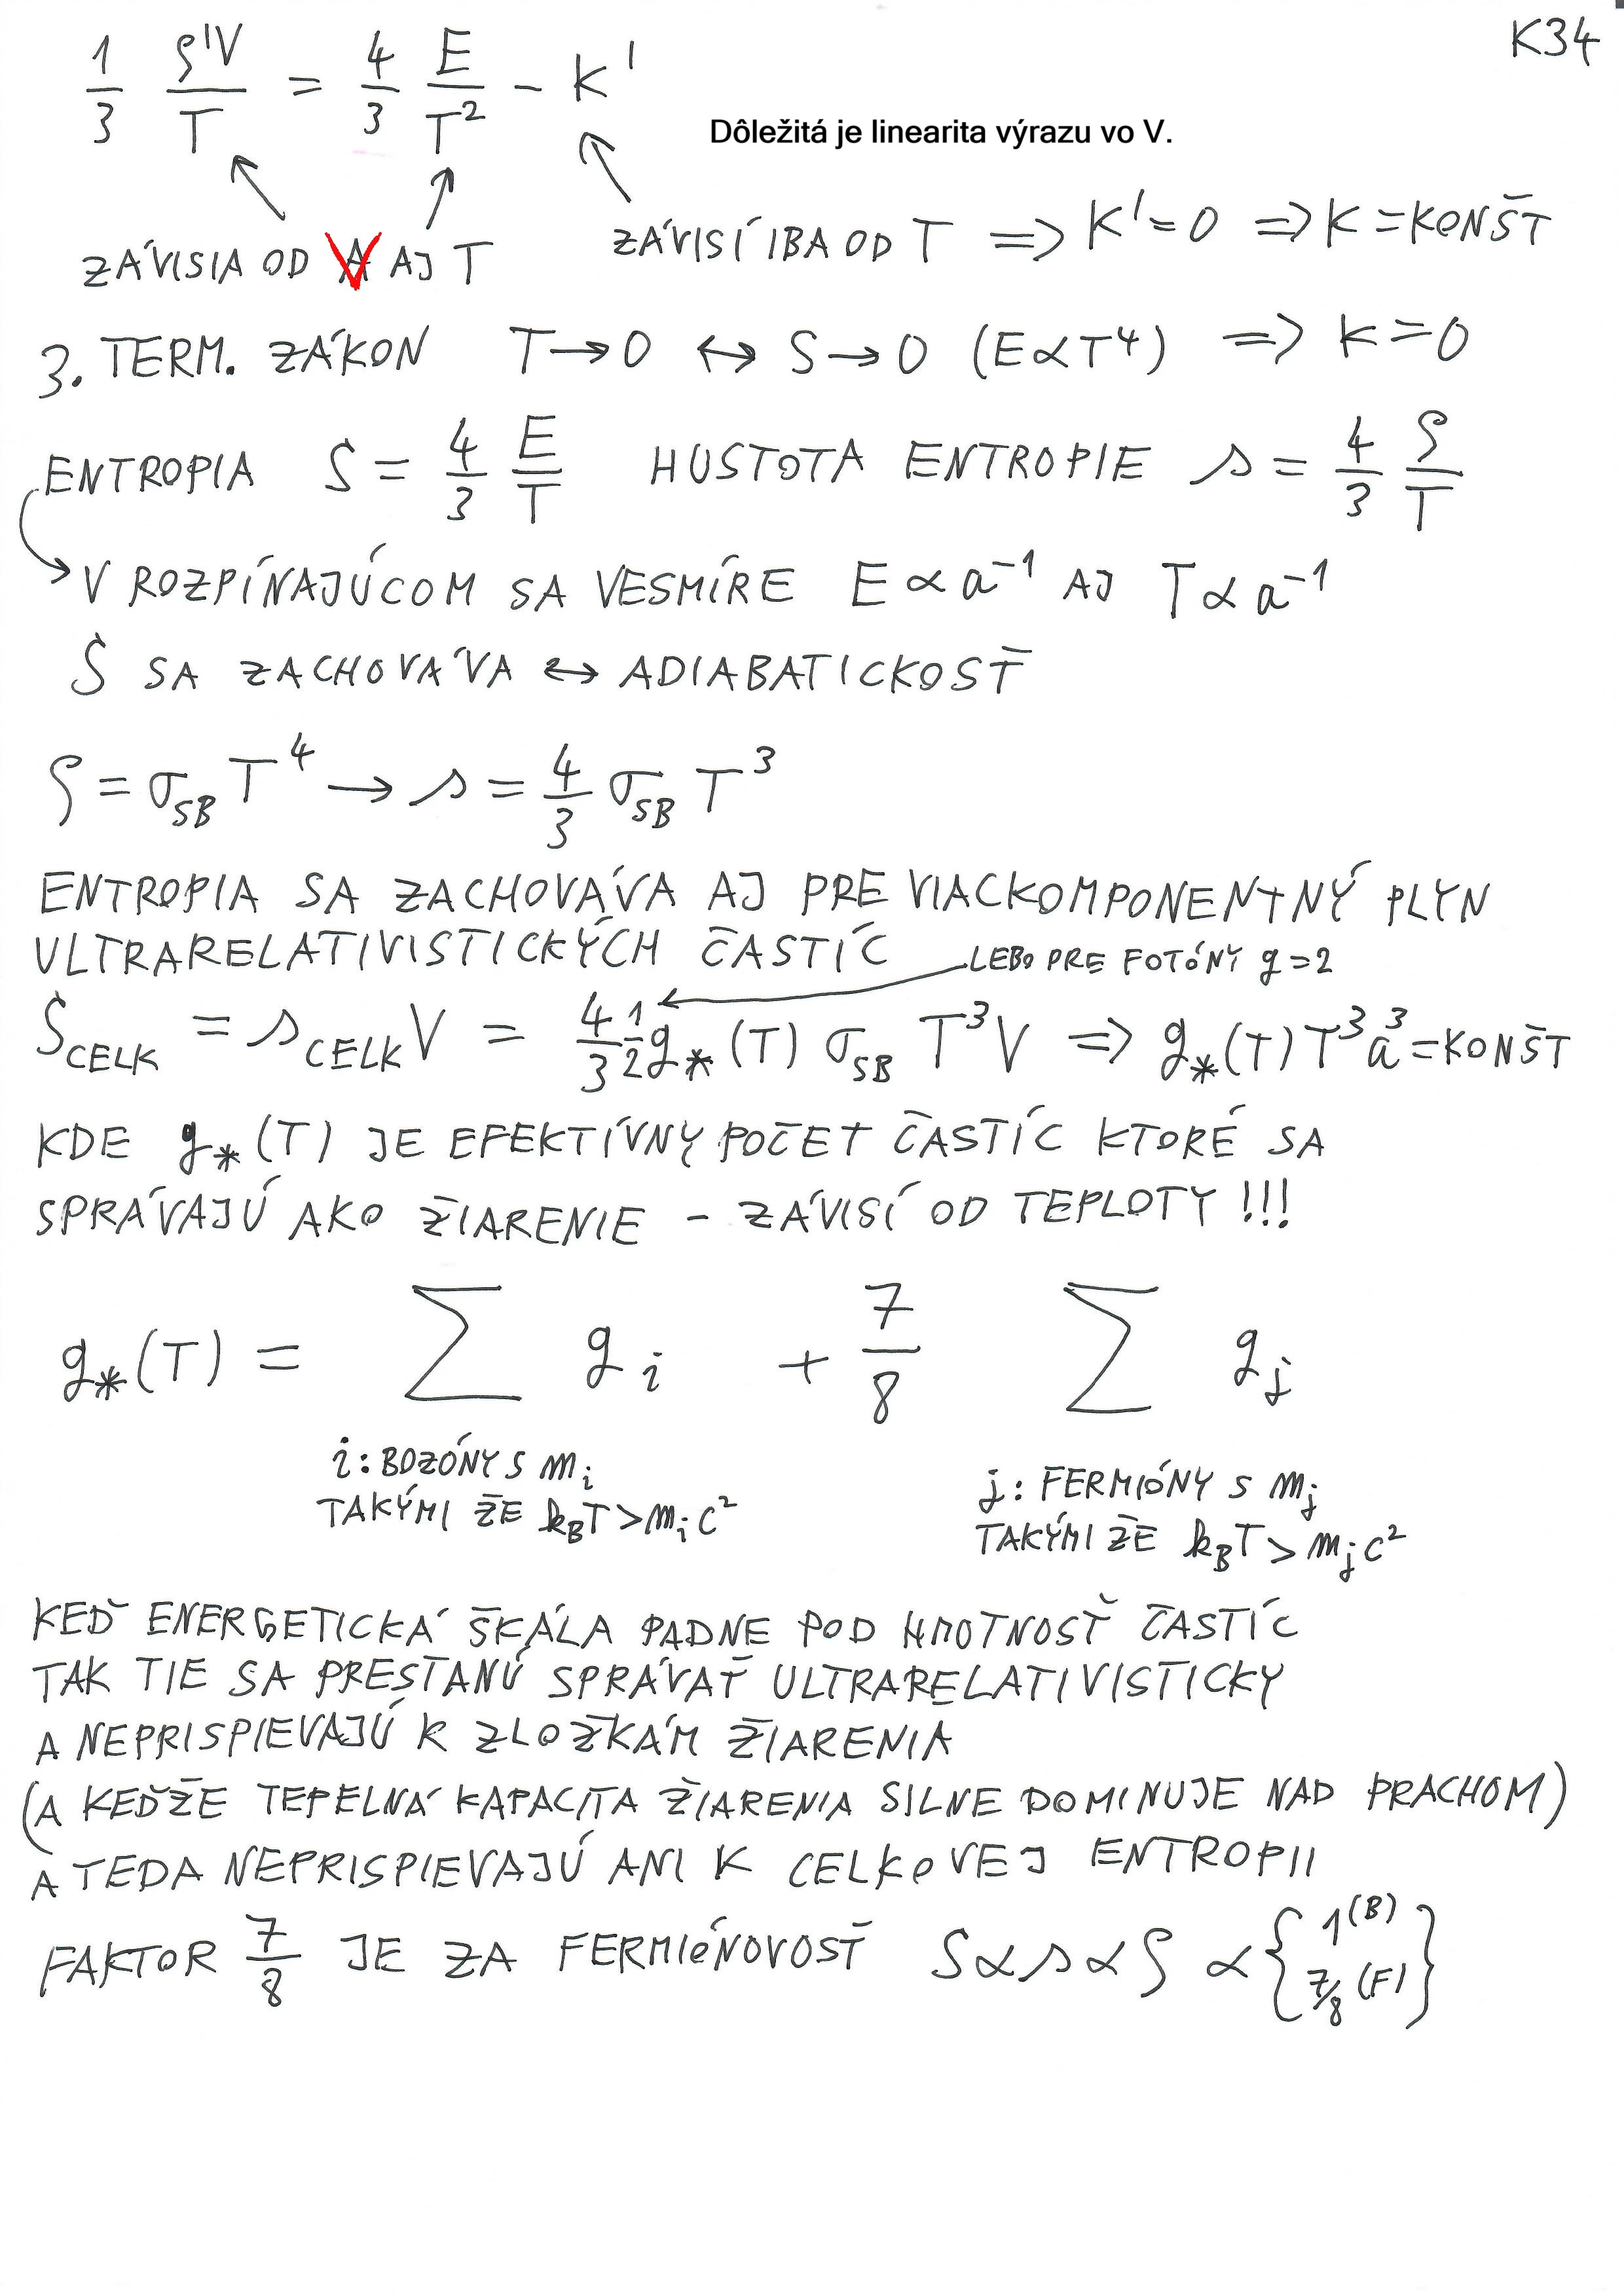 K34
1/3 ρ'V/T = 4/3 E/T² - K'
Dôležitá je linearita výrazu vo V.
ZÁVISIA OD V AJ T
ZÁVISÍ IBA OD T => K'=0 => K=KONŠT
3. TERM. ZÁKON T→0 ↔ S→0 (E∝T⁴) => K=0
ENTROPIA S = 4/3 E/T HUSTOTA ENTROPIE s = 4/3 ρ/T
V ROZPÍNAJÚCOM SA VESMÍRE E∝a⁻¹ AJ T∝a⁻¹
S SA ZACHOVÁVA ↔ ADIABATICKOSŤ
ρ = σ_SB T⁴ → s = 4/3 σ_SB T³
ENTROPIA SA ZACHOVÁVA AJ PRE VIACKOMPONENTNÝ PLYN
ULTRARELATIVISTICKÝCH ČASTÍC
LEBO PRE FOTÓNY g=2
S_CELK = s_CELK V = 4/3 1/2 g_*(T) σ_SB T³V => g_*(T)T³a³=KONŠT
KDE g_*(T) JE EFEKTÍVNY POČET ČASTÍC KTORÉ SA
SPRÁVAJÚ AKO ŽIARENIE - ZÁVISÍ OD TEPLOTY!!!
g_*(T) = ∑ g_i + 7/8 ∑ g_j
i: BOZÓNY S m_i
TAKÝMI ŽE k_B T > m_i c²
j: FERMIÓNY S m_j
TAKÝMI ŽE k_B T > m_j c²
KEĎ ENERGETICKÁ ŠKÁLA PADNE POD HMOTNOSŤ ČASTÍC
TAK TIE SA PRESTANÚ SPRÁVAŤ ULTRARELATIVISTICKY
A NEPRISPIEVAJÚ K ZLOŽKÁM ŽIARENIA
(A KEĎŽE TEPELNÁ KAPACITA ŽIARENIA SILNE DOMINUJE NAD PRACHOM)
A TEDA NEPRISPIEVAJÚ ANI K CELKOVEJ ENTROPII
FAKTOR 7/8 JE ZA FERMIÓNOVOSŤ S∝s∝ρ∝{1 (B) 7/8 (F)}